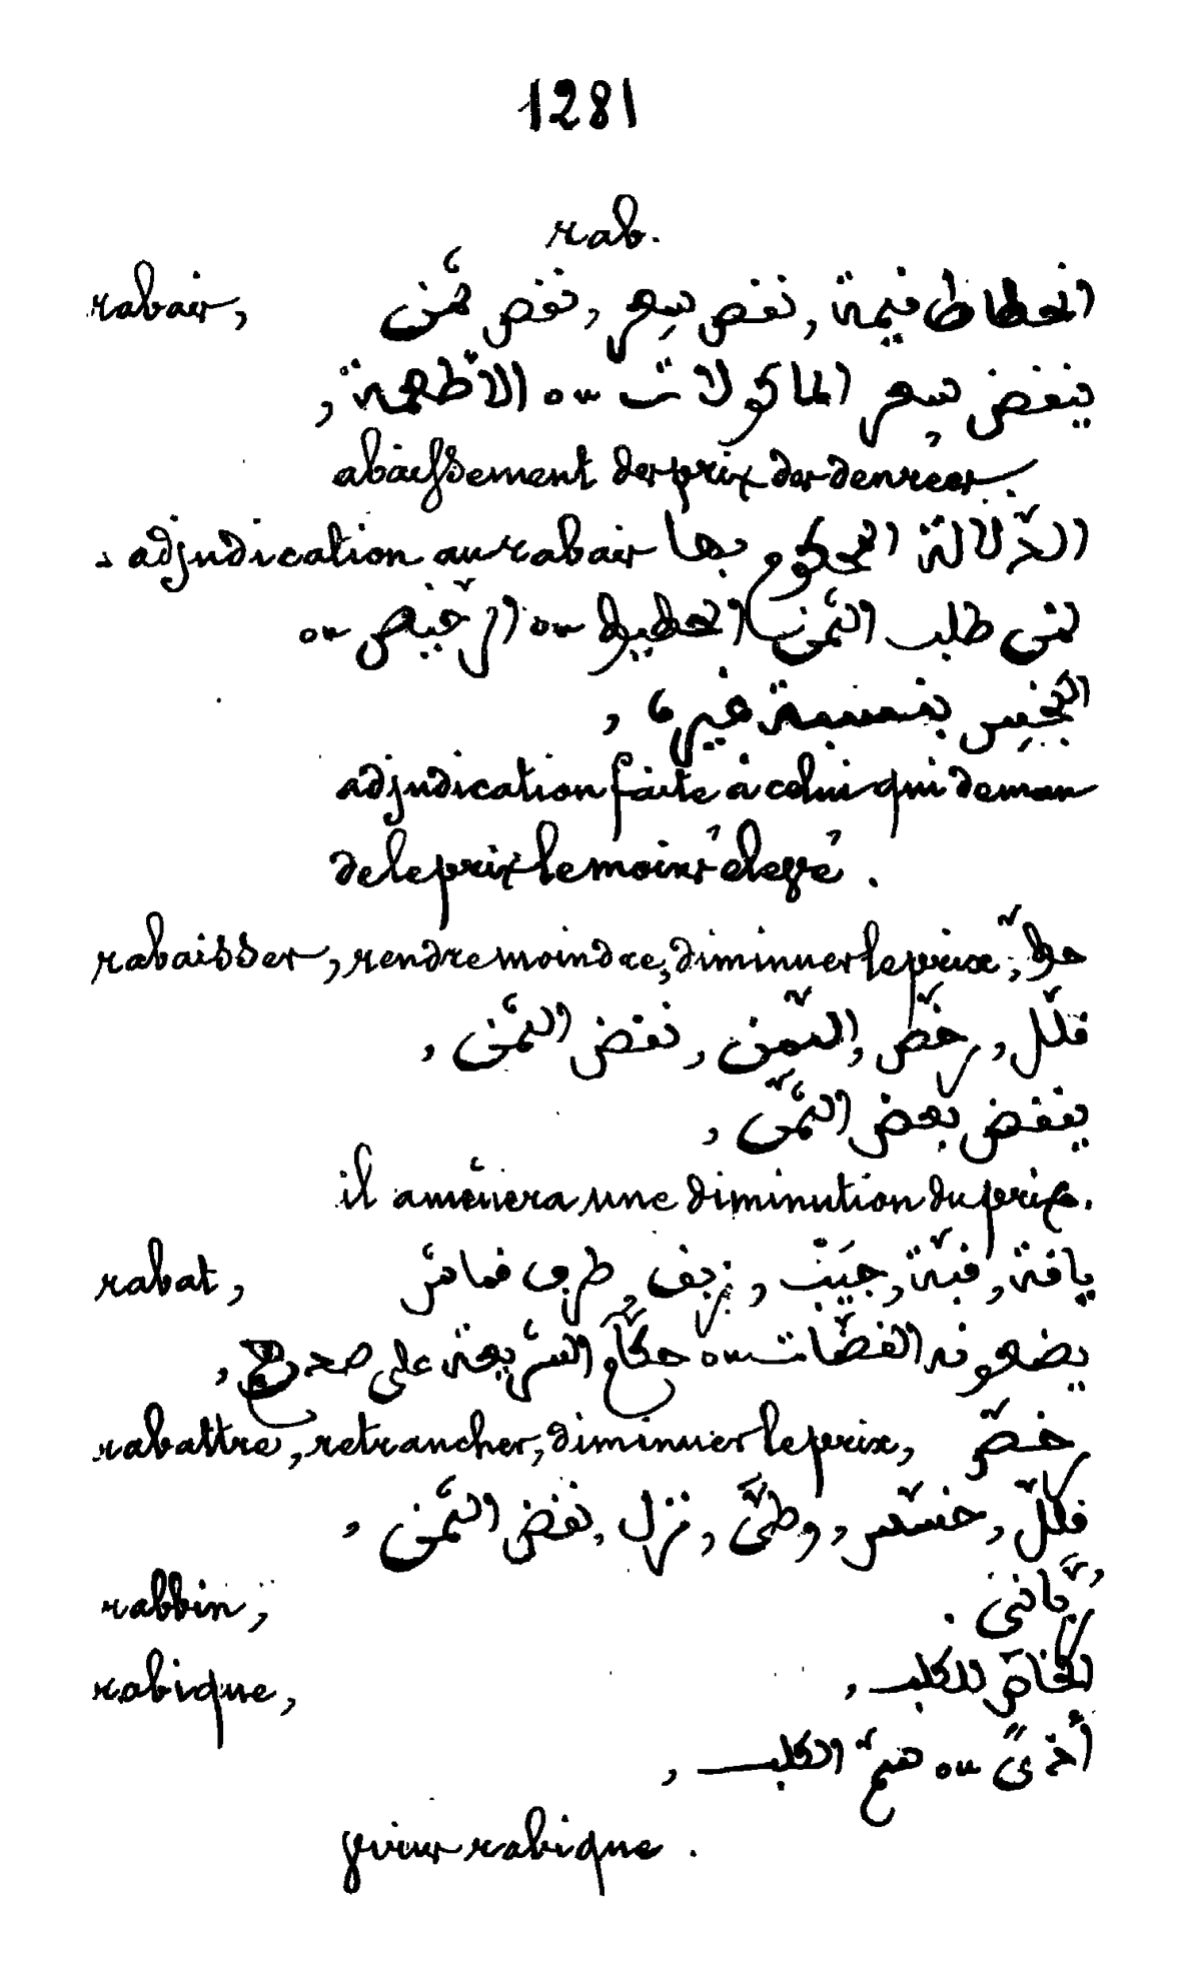 1281
rab.
rabais, انحطاط قيمة, نقص سعر, نقص ثمن
ينقض سعر الماكولات ou الاطعمة,
abaissement des prix des denrées.
adjudication au rabais الدّلالة المحكوم بها
لمن طلب الثمن الحطيط ou الرّخيص ou
البخيس بنسبة غيره,
adjudication faite à celui qui deman
de le prix le moins élevé.
rabaisser, rendre moindre, diminuer le prix, حطّ
قلّل, رخّص الثّمن, نقض الثمن,
ينقض بعض الثمن,
il amènera une diminution du prix.
rabat, ياقة, قبّة, جيب, زيف, طرف قماش
يضعونه القضّات ou حكّام الشريعة على صدرهم,
rabattre, retrancher, diminuer le prix, رخّص
قلّل, خسّر, وطّى, نزل, نقض الثمن,
rabbin, ربّاني.
rabique, الخاصّ للكلب,
أذىً ou سمّ الكلب,
virus rabique.